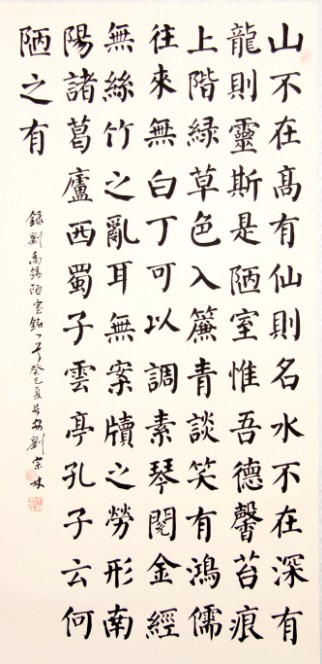 山不在髙有仙則名水不在深有
龍則靈斯是陋室惟吾德馨苔痕
上階綠草色入簾青談笑有鴻儒
往來無白丁可以調素琴閱金經
無絲竹之亂耳無案牘之勞形南
陽諸葛廬西蜀子雲亭孔子云何
陋之有
錄劉禹錫陋室銘一首癸巳夏長安劉宗林